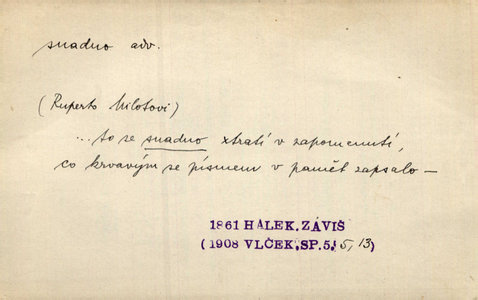 snadno adv.
(Ruperto Milotovi)
...to se snadno ztratí v zapomenutí,
co krvavým se písmem v paměť zapsalo –
1861 HÁLEK, ZÁVIŠ
(1908 VLČEK, SP. 5, 5, 13)